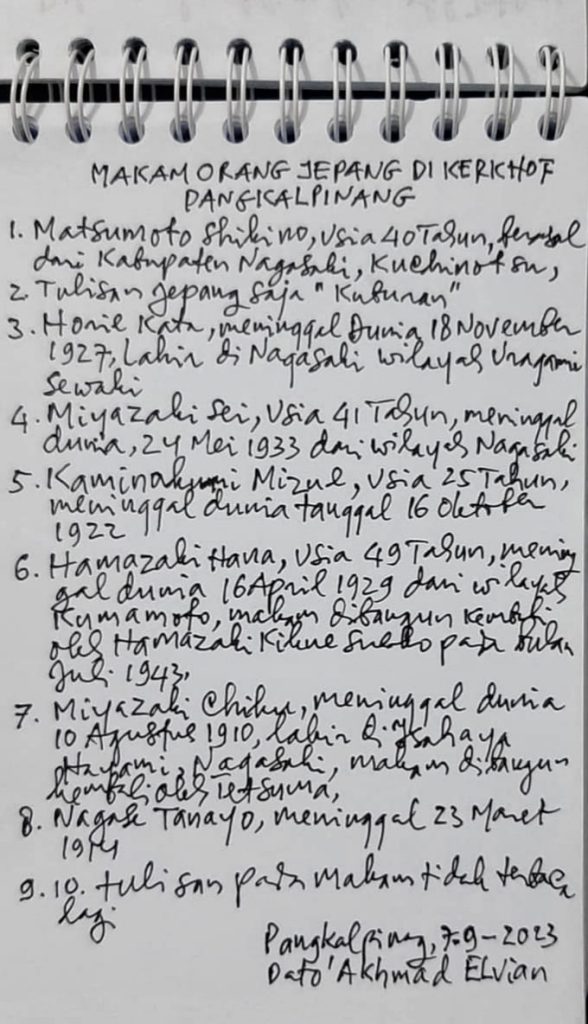 MAKAM ORANG JEPANG DI KERKHOF
PANGKALPINANG
1. Matsumoto Shikino, Usia 40 Tahun, berasal
dari Kabupaten Nagasaki, Kuchinotsu,
2. Tulisan Jepang saja "Kuburan"
3. Horie Kata, meninggal Dunia 18 November
1927, Lahir di Nagasaki wilayah Uragami
Sewaki
4. Miyazaki Sei, Usia 41 Tahun, meninggal
dunia, 24 Mei 1933 dari wilayah Nagasaki
5. Mizue, Usia 25 Tahun,
meninggal dunia tanggal 16 Oktober
1922
6. Hamazaki Hana, Usia 49 Tahun, mening
gal dunia 16 April 1929 dari wilayah
Kumamoto, makam dibangun kembali
oleh Hamazaki Kikue pada bulan
Juli 1943,
7. Miyazaki Chiku, meninggal dunia
10 Agustus 1910, lahir di
Hayami, Nagasaki, makam dibangun
kembali oleh Tetsuma,
8. Nagase Tanayo, meninggal 23 Maret
1914
9. 10. tulisan pada makam tidak terbaca
lagi
Pangkalpinang, 7-9-2023
Dato' Akhmad ELVian